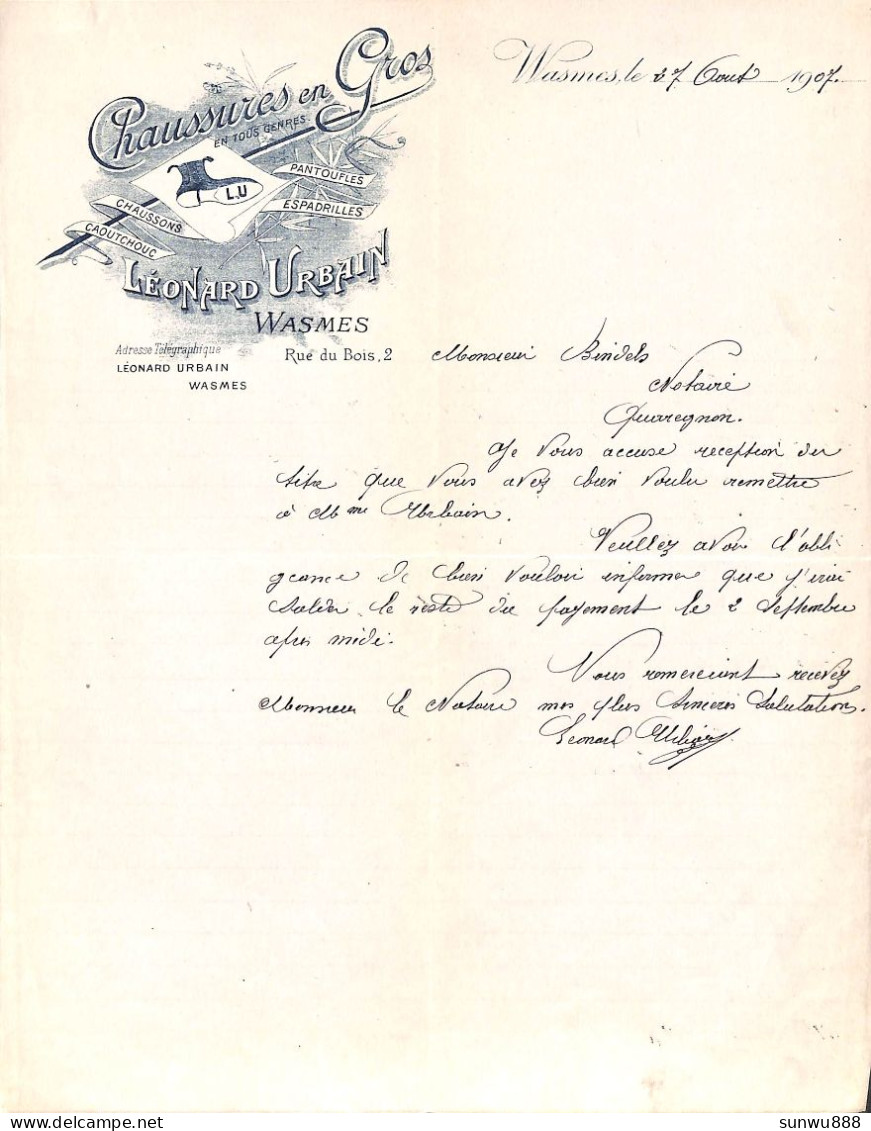 Chaussures en Gros
EN TOUS GENRES.
L.U
PANTOUFLES
ESPADRILLES
CHAUSSONS
CAOUTCHOUC
LÉONARD URBAIN
WASMES
Rue du Bois, 2
Adresse Télégraphique
LÉONARD URBAIN
WASMES
Wasmes, le 27 Aout 1907.
Monsieur Bindels
Notaire
Quaregnon.
Je vous accuse reception du
titre que vous avez bien voulu remettre
à Mme Urbain.
Veuillez avoir l'obli
geance de bien vouloir informer que j'irai
solder le reste du payement le 2 Septembre
apres midi.
Vous remerciant recevez
Monsieur le Notaire mes plus sinceres salutations.
Léonard Urbain
sunwu888